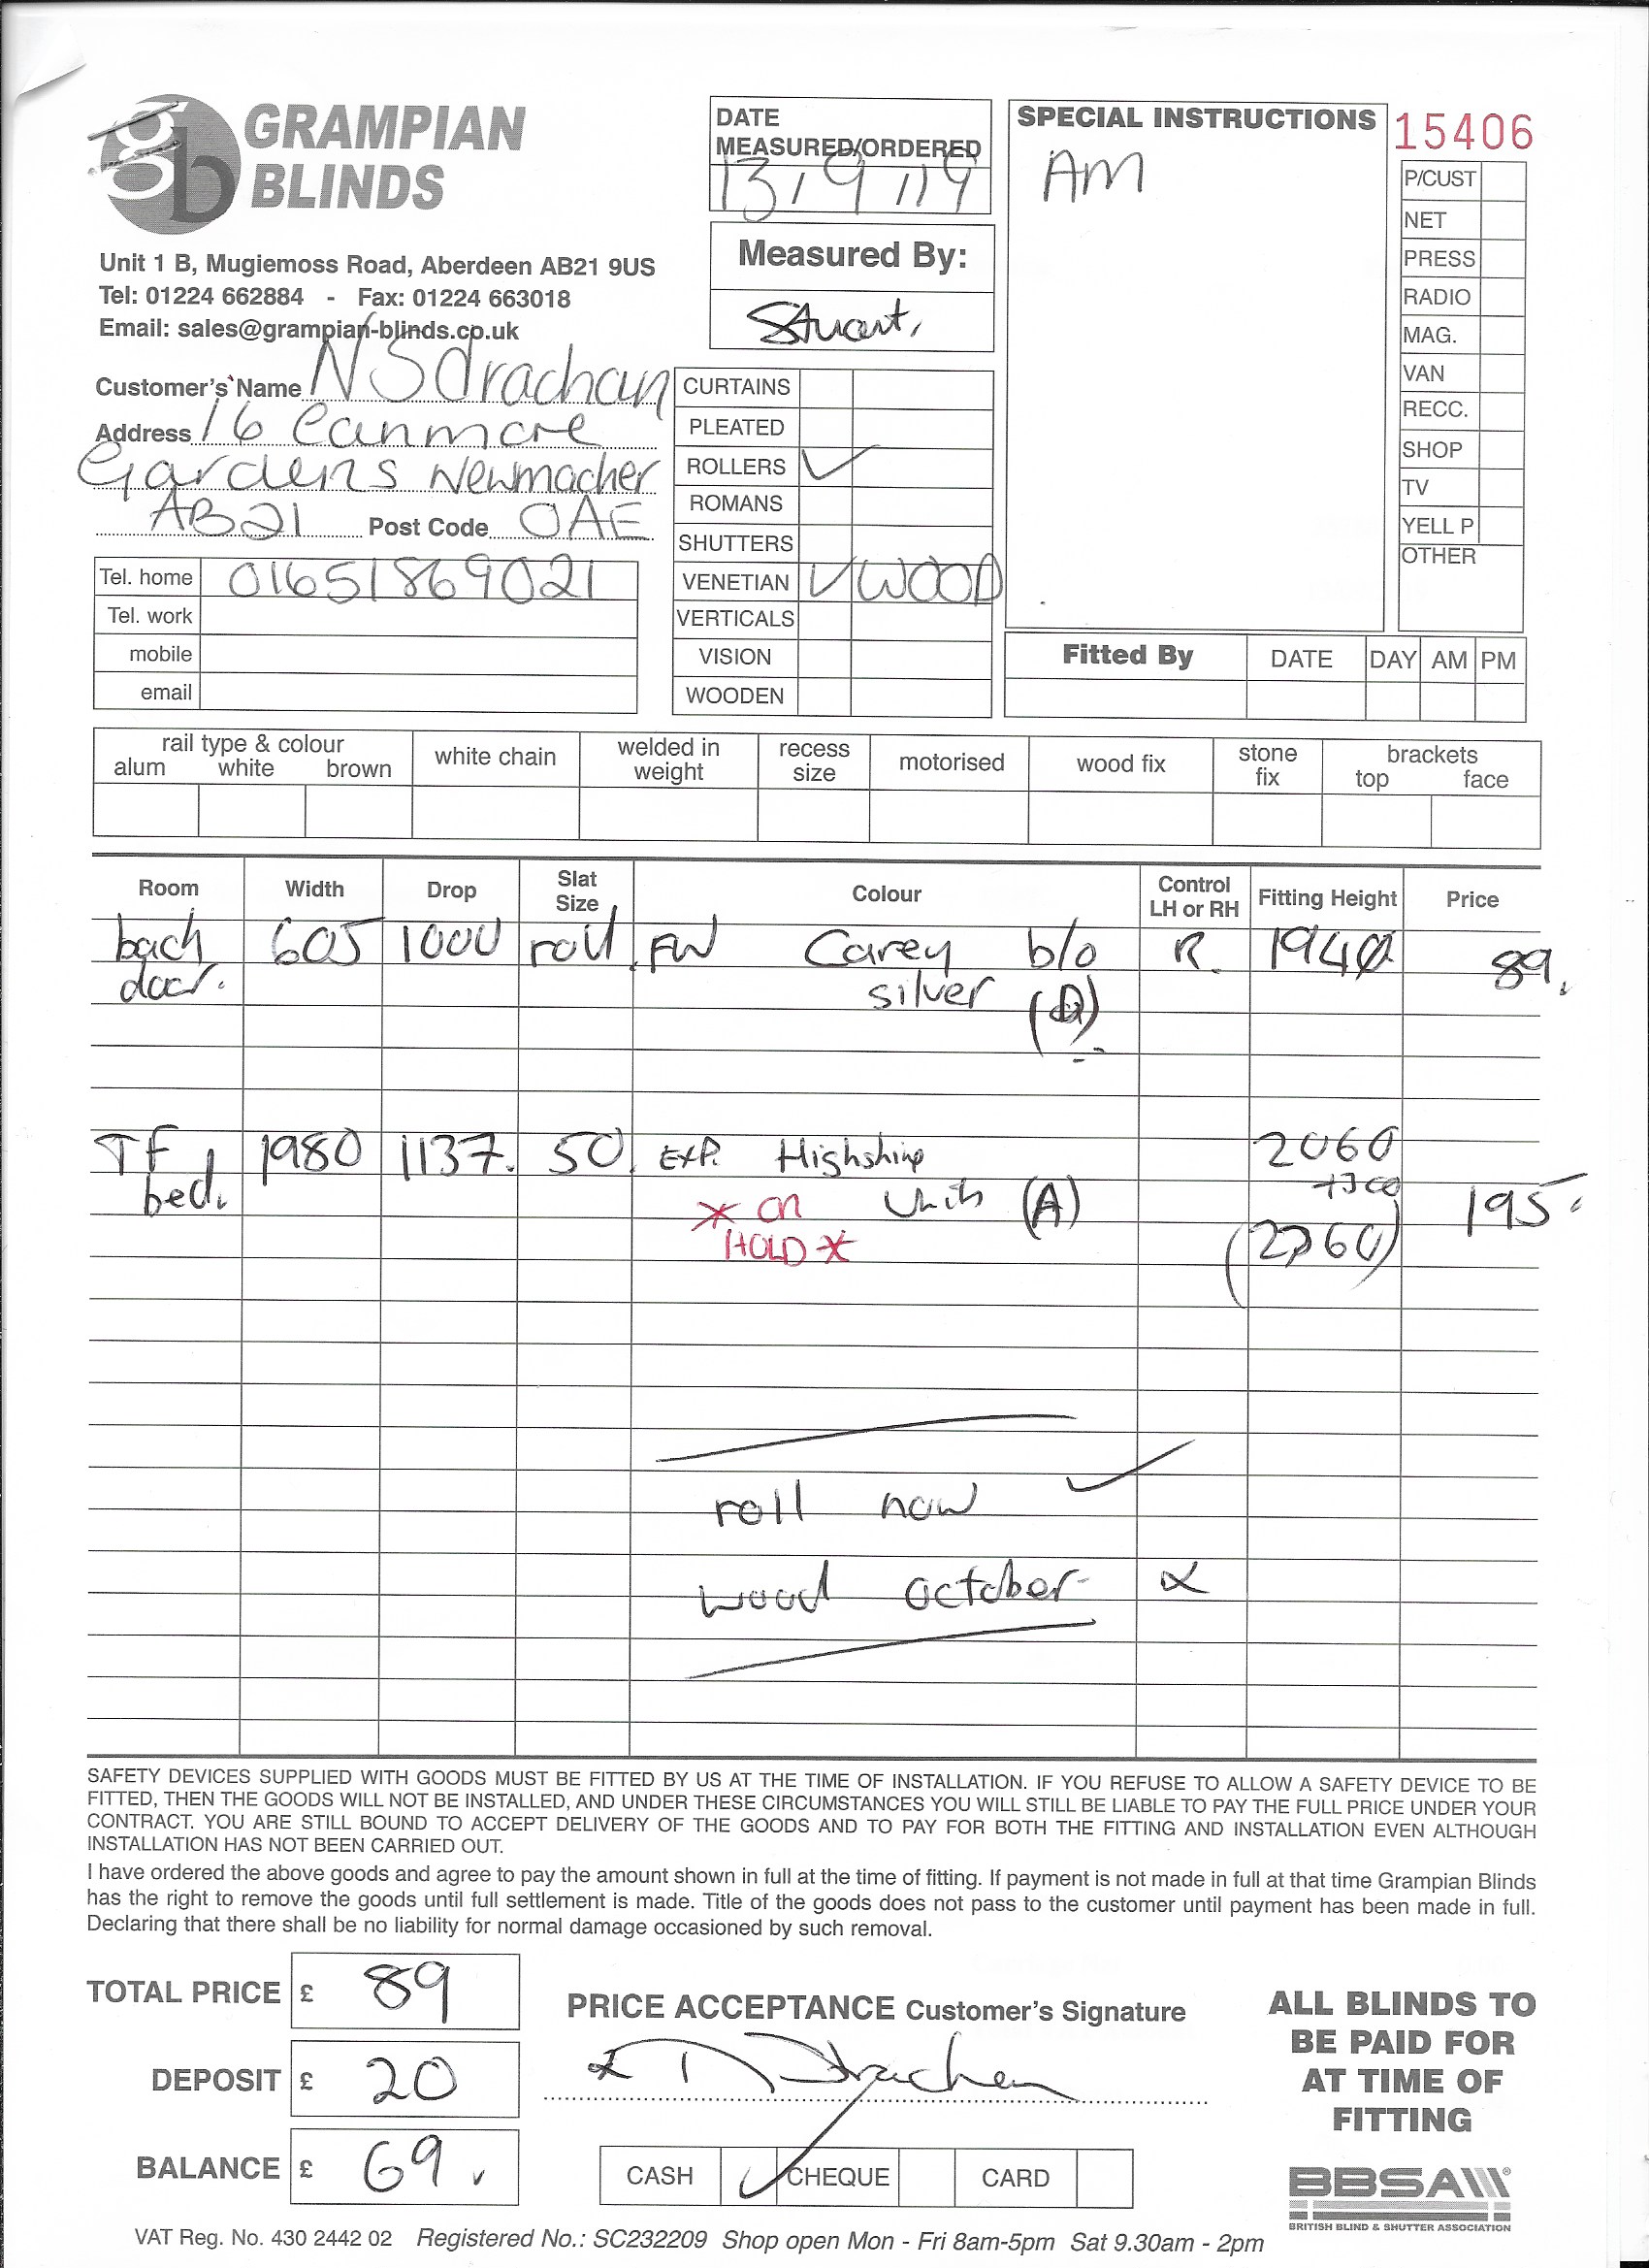 gb GRAMPIAN
BLINDS
Unit 1 B, Mugiemoss Road, Aberdeen AB21 9US
Tel: 01224 662884 - Fax: 01224 663018
Email: sales@grampian-blinds.co.uk
Customer's Name N S drachan
Address 16 Canmore
Gardens Newmacher
AB21 Post Code 0AE
Tel. home 01651869021
Tel. work
mobile
email
DATE
MEASURED/ORDERED
13/9/19
Measured By:
Stuart.
CURTAINS
PLEATED
ROLLERS ✓
ROMANS
SHUTTERS
VENETIAN ✓ WOOD
VERTICALS
VISION
WOODEN
SPECIAL INSTRUCTIONS
AM
15406
P/CUST
NET
PRESS
RADIO
MAG.
VAN
RECC.
SHOP
TV
YELL P
OTHER
Fitted By DATE DAY AM PM
rail type & colour
alum white brown
white chain
welded in
weight
recess
size
motorised
wood fix
stone
fix
brackets
top face
Room Width Drop Slat Size Colour Control LH or RH Fitting Height Price
bach 605 1000 roll. FW Carey b/o R. 1940 89.
door. silver
TF 1980 1137. 50. EXP. Highshine 2060
bed. (A) +300 195.
* on
HOLD *
roll now ✓
wood october
SAFETY DEVICES SUPPLIED WITH GOODS MUST BE FITTED BY US AT THE TIME OF INSTALLATION. IF YOU REFUSE TO ALLOW A SAFETY DEVICE TO BE
FITTED, THEN THE GOODS WILL NOT BE INSTALLED, AND UNDER THESE CIRCUMSTANCES YOU WILL STILL BE LIABLE TO PAY THE FULL PRICE UNDER YOUR
CONTRACT. YOU ARE STILL BOUND TO ACCEPT DELIVERY OF THE GOODS AND TO PAY FOR BOTH THE FITTING AND INSTALLATION EVEN ALTHOUGH
INSTALLATION HAS NOT BEEN CARRIED OUT.
I have ordered the above goods and agree to pay the amount shown in full at the time of fitting. If payment is not made in full at that time Grampian Blinds
has the right to remove the goods until full settlement is made. Title of the goods does not pass to the customer until payment has been made in full.
Declaring that there shall be no liability for normal damage occasioned by such removal.
TOTAL PRICE £ 89
DEPOSIT £ 20
BALANCE £ 69.
PRICE ACCEPTANCE Customer's Signature
CASH ✓ CHEQUE CARD
ALL BLINDS TO
BE PAID FOR
AT TIME OF
FITTING
BBSA
BRITISH BLIND & SHUTTER ASSOCIATION
VAT Reg. No. 430 2442 02 Registered No.: SC232209 Shop open Mon - Fri 8am-5pm Sat 9.30am - 2pm